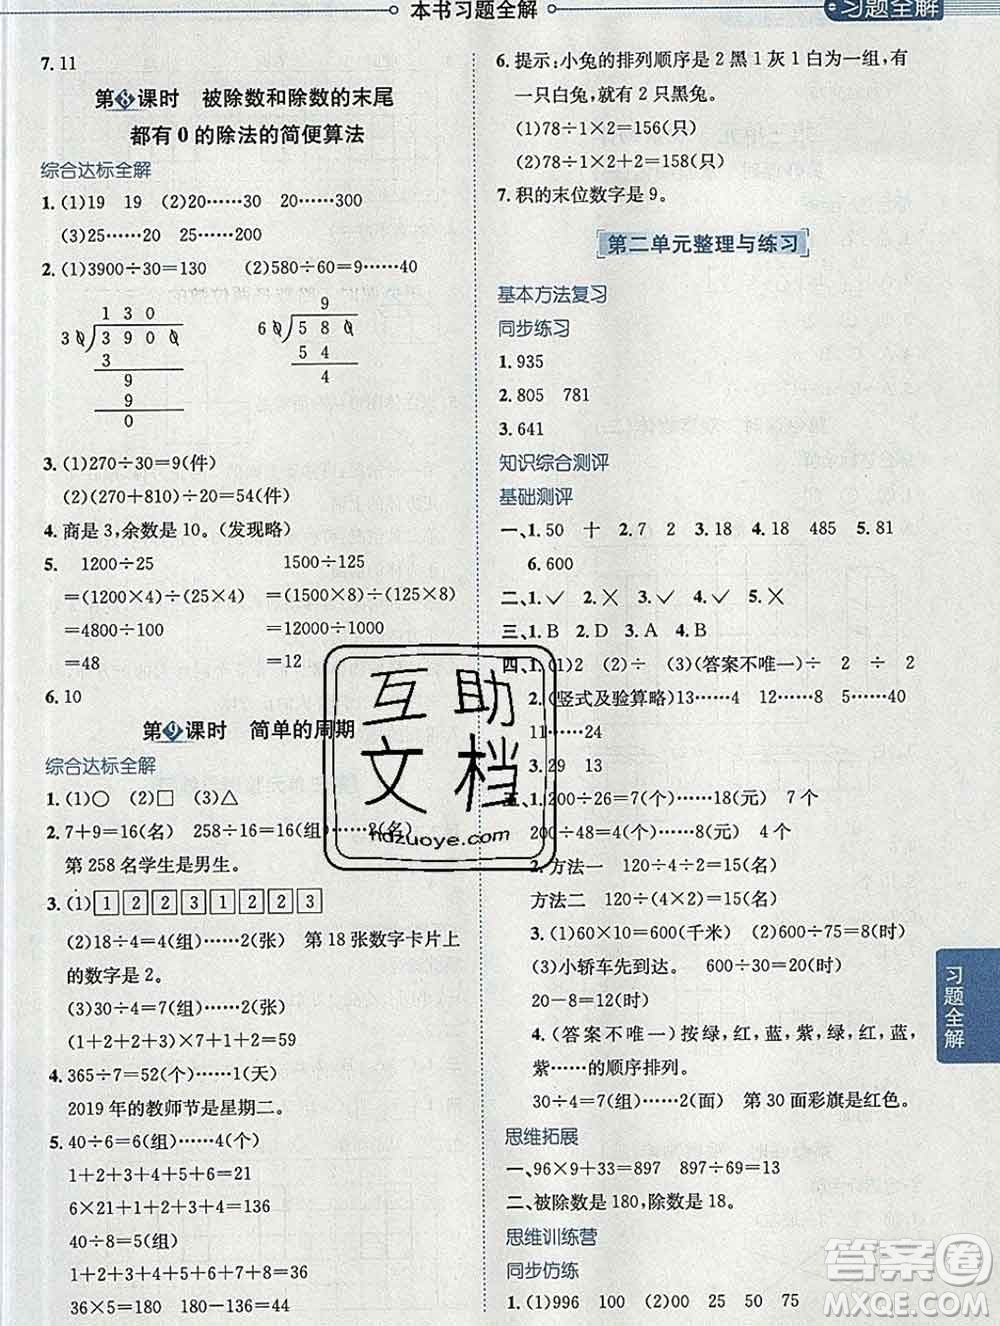 本书习题全解
习题全解
7. 11
第8课时 被除数和除数的末尾
都有0的除法的简便算法
综合达标全解
1. (1)19 19 (2)20……30 20……300
(3)25……20 25……200
2. (1)3900÷30=130 (2)580÷60=9……40
1 3 0
3 0 3 9 0 0
3
9
9
0
9
6 0 5 8 0
5 4
4
3. (1)270÷30=9(件)
(2)(270+810)÷20=54(件)
4. 商是3,余数是10。(发现略)
5. 1200÷25 1500÷125
=(1200×4)÷(25×4) =(1500×8)÷(125×8)
=4800÷100 =12000÷1000
=48 =12
6. 10
第9课时 简单的周期
综合达标全解
1. (1)○ (2)□ (3)△
2. 7+9=16(名) 258÷16=16(组)……2(名)
第258名学生是男生。
3. (1) 1 2 2 3 1 2 2 3
(2)18÷4=4(组)……2(张) 第18张数字卡片上
的数字是2。
(3)30÷4=7(组)……2(张)
(1+2+2+3)×7+1+2=59
4. 365÷7=52(个)……1(天)
2019年的教师节是星期二。
5. 40÷6=6(组)……4(个)
1+2+3+4+5+6=21
6×21+1+2+3+4=136
40÷8=5(组)
1+2+3+4+5+6+7+8=36
36×5=180 180-136=44
6. 提示:小兔的排列顺序是2黑1灰1白为一组,有
一只白兔,就有2只黑兔。
(1)78÷1×2=156(只)
(2)78÷1×2+2=158(只)
7. 积的末位数字是9。
第二单元整理与练习
基本方法复习
同步练习
1. 935
2. 805 781
3. 641
知识综合测评
基础测评
一、1. 50 十 2. 7 2 3. 18 4. 18 485 5. 81
6. 600
二、1. ✓ 2. ✗ 3. ✓ 4. ✓ 5. ✗
三、1. B 2. D 3. A 4. B
四、1. (1)2 (2)÷ (3)(答案不唯一)÷ 2 ÷ 2
2. (竖式及验算略)13……4 12……8 5
11……24
3. 29 13
五、1. 200÷26=7(个)……18(元) 7个
200÷48=4(个)……8(元) 4个
2. 方法一 120÷4÷2=15(名)
方法二 120÷(4×2)=15(名)
3. (1)60×10=600(千米) (2)600÷75=8(时)
(3)小轿车先到达。 600÷30=20(时)
20-8=12(时)
4. (答案不唯一)按绿,红,蓝,紫,绿,红,蓝,
紫……的顺序排列。
30÷4=7(组)……2(面) 第30面彩旗是红色。
思维拓展
一、96×9+33=897 897÷69=13
二、被除数是180,除数是18。
思维训练营
同步仿练
1. (1)996 100 (2)00 25 50 75
习题全解
互助
文档
hdzuoye.com
答案圈
MXQE.COM